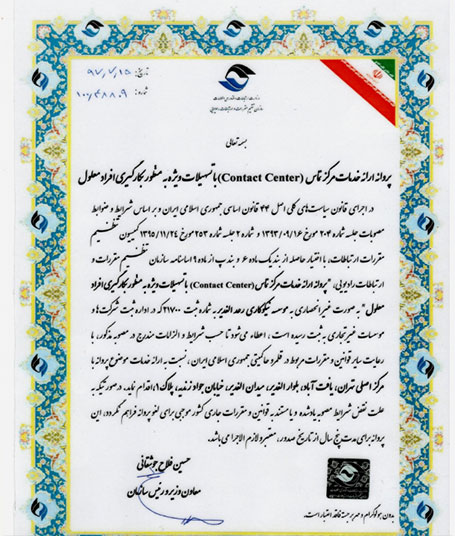 تاریخ: ۹۷,۷,۱۵
شماره: ۱۰۰,۴۸۸۰۹
وزارت ارتباطات و فناوری اطلاعات
سازمان تنظیم مقررات و ارتباطات رادیویی
بسمه تعالی
پروانه ارائه خدمات مرکز تماس (Contact Center) با تسهیلات ویژه به منظور بکارگیری افراد معلول
در اجرای قانون سیاست‌های کلی اصل ۴۴ قانون اساسی جمهوری اسلامی ایران و بر اساس شرایط و ضوابط
مصوبات جلسه شماره ۲۰۴ مورخ ۱۳۹۳/۰۹/۱۶ و شماره ۲ جلسه شماره ۲۵۳ مورخ ۱۳۹۵/۱۱/۲۴ کمیسیون تنظیم
مقررات ارتباطات، با اختیار حاصله از بند یک ماده ۶ و بند پ از ماده ۹ اساسنامه سازمان تنظیم مقررات و
ارتباطات رادیویی، "پروانه ارائه خدمات مرکز تماس (Contact Center) با تسهیلات ویژه به منظور بکارگیری افراد
معلول" به صورت غیر انحصاری به موسسه نیکوکاری رعد الغدیر به شماره ثبت ۲۱۷۰۰ که در اداره ثبت شرکت‌ها و
موسسات غیر تجاری به ثبت رسیده است، اعطاء می‌شود تا حسب شرایط و الزامات مندرج در مصوبه مذکور، با
رعایت سایر قوانین و مقررات مربوط در قلمرو حاکمیتی جمهوری اسلامی ایران، نسبت به ارائه خدمات موضوع پروانه با
مرکز اصلی تهران، یافت آباد، بلوار الغدیر، میدان الغدیر، خیابان جواد زندیه، پلاک ۱، اقدام نماید. در صورتیکه به
علت نقض شرایط مصوبه یاد شده و یا مستند به قوانین و مقررات جاری کشور موجبی برای لغو پروانه فراهم نگردد، این
پروانه برای مدت پنج سال از تاریخ صدور، معتبر و لازم الاجرا می‌باشد.
حسین فلاح جوشقانی
معاون وزیر و رئیس سازمان
بدون هولوگرام و مهر برجسته فاقد اعتبار است.